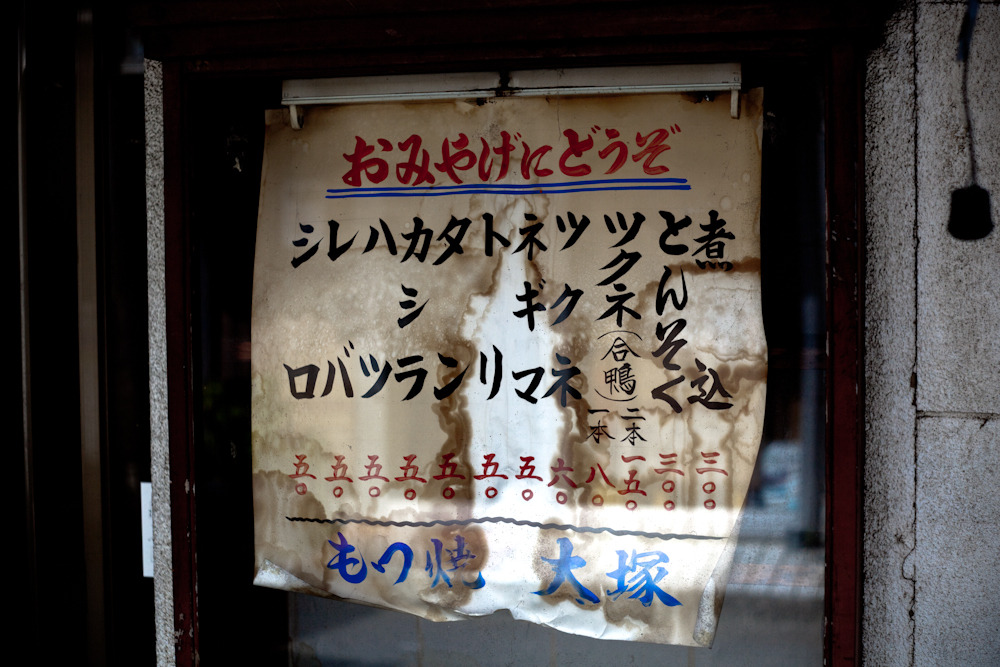 おみやげにどうぞ
煮込 三〇〇
とんそく 三〇〇
ツクネ(合鴨) 二本 一五〇
一本 八〇
ツクネ 六〇
ネギマ 五〇
トリ 五〇
タン 五〇
カシラ 五〇
ハツ 五〇
レバ 五〇
シロ 五〇
もつ焼 大塚